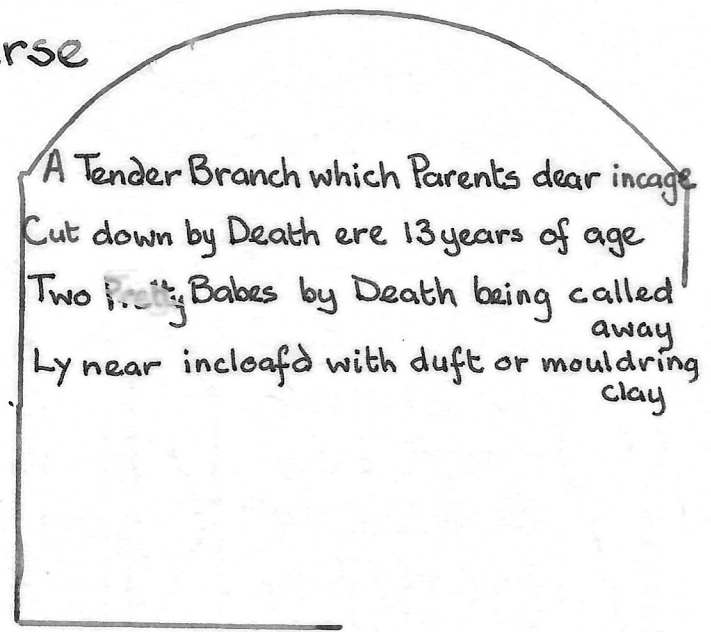 rse
A Tender Branch which Parents dear incage
Cut down by Death ere 13 years of age
Two Pretty Babes by Death being called
away
Ly near incloafd with duft or mouldring
clay